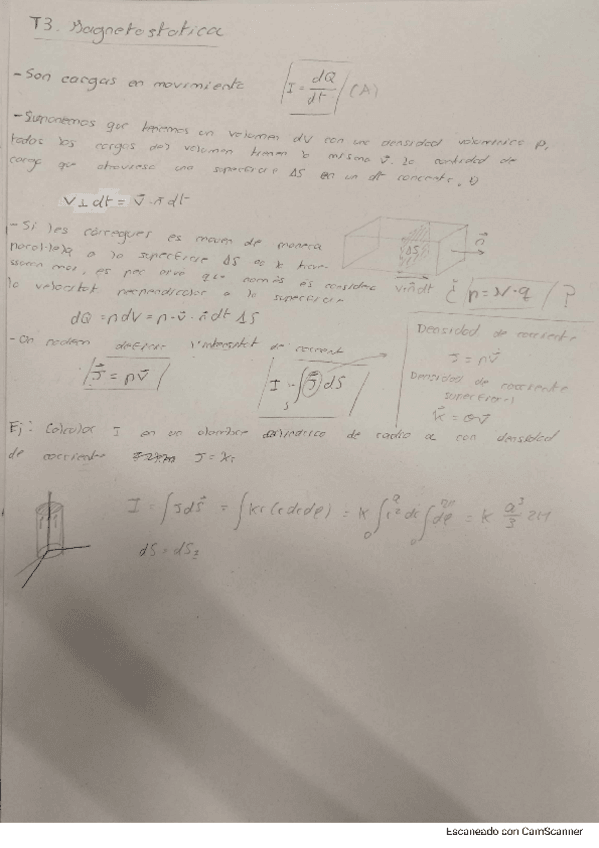 T3. Magnetostatica
- Son cargas en movimiento I = dQ/dt (A)
- Suponemos que tenemos un volumen dV con una densidad volumetrica ρ,
todas las cargas del volumen tienen la misma v⃗. La cantidad de
carga que atraviesa una superficie ΔS en un dt
V⊥dt = v⃗·n̂ dt
- Si les càrregues es mouen de manera
paral·lela a la superficie ΔS no la
es per això que només es considera
la velocitat perpendicular a la superficie
n⃗
ΔS
v·n̂dt
¿ ρ = N·q ?
dQ = ρdV = ρ·v⃗·n̂dt ΔS
- On podem definir l'intensitat de corrent
J⃗ = ρv⃗
I = ∫ J⃗ dS⃗
S
Densidad de corriente
J = ρv⃗
Densidad de corriente
superficial
K⃗ = σv⃗
Ej: Calcular I en un alambre cilindrico de radio a con densidad
de corriente J = Kr
I = ∫ J dS⃗ = ∫ Kr (r dr dφ) = K ∫₀ᵃ r² dr ∫₀²π dφ = K a³/3 2π
dS = dSz
Escaneado con CamScanner